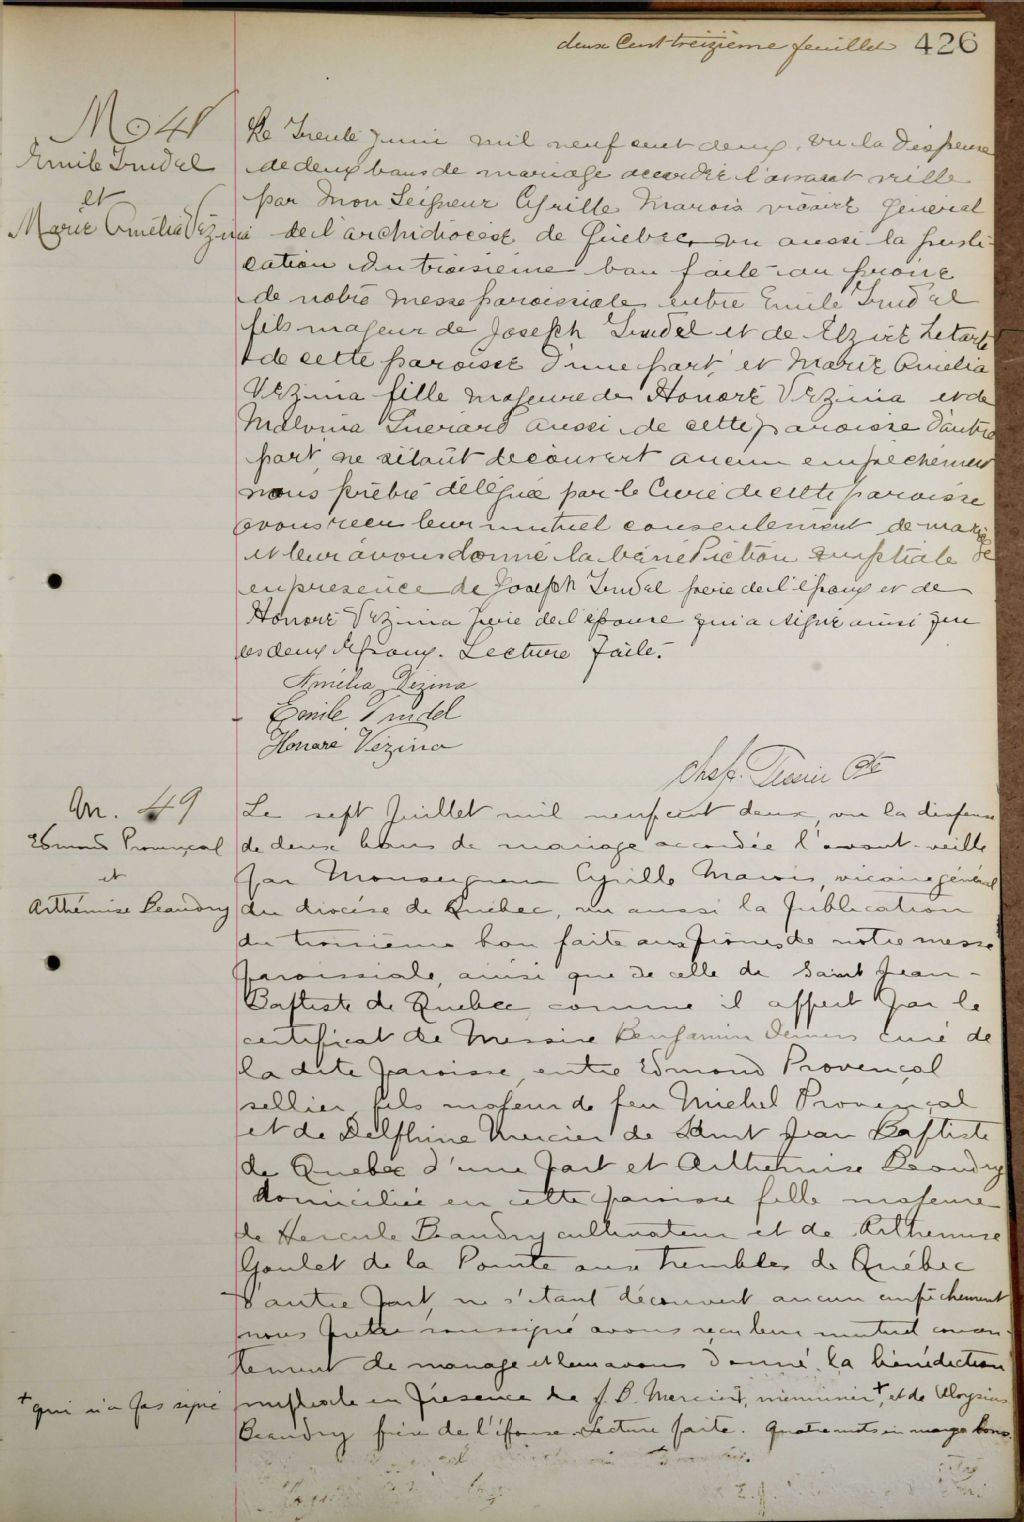 deux Cent treizième feuillet 426
M 48
Emile Trudel
et
Marie Amélia Vézina
Le Trente Juin mil neuf cent deux, vu la dispense
de deux bans de mariage accordée l'avant veille
par Mon Seigneur Cyrille Marois vicaire général
de l'archidiocèse de Québec, vu aussi la publi-
cation du troisième ban faite au prône
de notre messe paroissiale entre Emile Trudel
fils majeur de Joseph Trudel et de Elzire Letarte
de cette paroisse d'une part et Marie Amelia
Vézina fille majeure de Honoré Vézina et de
Malvina Guérard aussi de cette paroisse d'autre
part, ne s'étant découvert aucun empêchement
nous prêtre délégué par le Curé de cette paroisse
avons reçu leur mutuel consentement de mariage
et leur avons donné la bénédiction nuptiale
en présence de Joseph Trudel père de l'époux et de
Honoré Vézina père de l'épouse qui a signé ainsi que
les deux époux. Lecture faite.
Amélia Vézina
Emile Trudel
Honoré Vézina
Tessier Ptre
M. 49
Edmond Provençal
et
Arthémise Beaudry
Le sept Juillet mil neuf cent deux, vu la dispense
de deux bans de mariage accordée l'avant-veille
par Monseigneur Cyrille Marois, vicaire général
du diocèse de Québec, vu aussi la publication
du troisième ban faite aux prônes de notre messe
paroissiale, ainsi que de celle de Saint Jean-
Baptiste de Québec comme il appert par le
certificat de Messire Benjamin Demers curé de
la dite paroisse, entre Edmond Provençal
sellier, fils majeur de feu Michel Provençal
et de Delphine Mercier de Saint Jean Baptiste
de Québec d'une part et Arthémise Beaudry
domiciliée en cette paroisse fille majeure
de Hercule Beaudry cultivateur et de Arthemise
Goulet de la Pointe aux trembles de Québec
d'autre part, ne s'étant découvert aucun empêchement
nous prêtre soussigné avons reçu leur mutuel consen-
tement de mariage et leur avons donné la bénédiction
nuptiale en présence de J. B. Mercier, menuisier,+ et de Aloysius
+ qui n'a pas signé
Beaudry frère de l'épouse. Lecture faite. Quatre mots en marge bons.